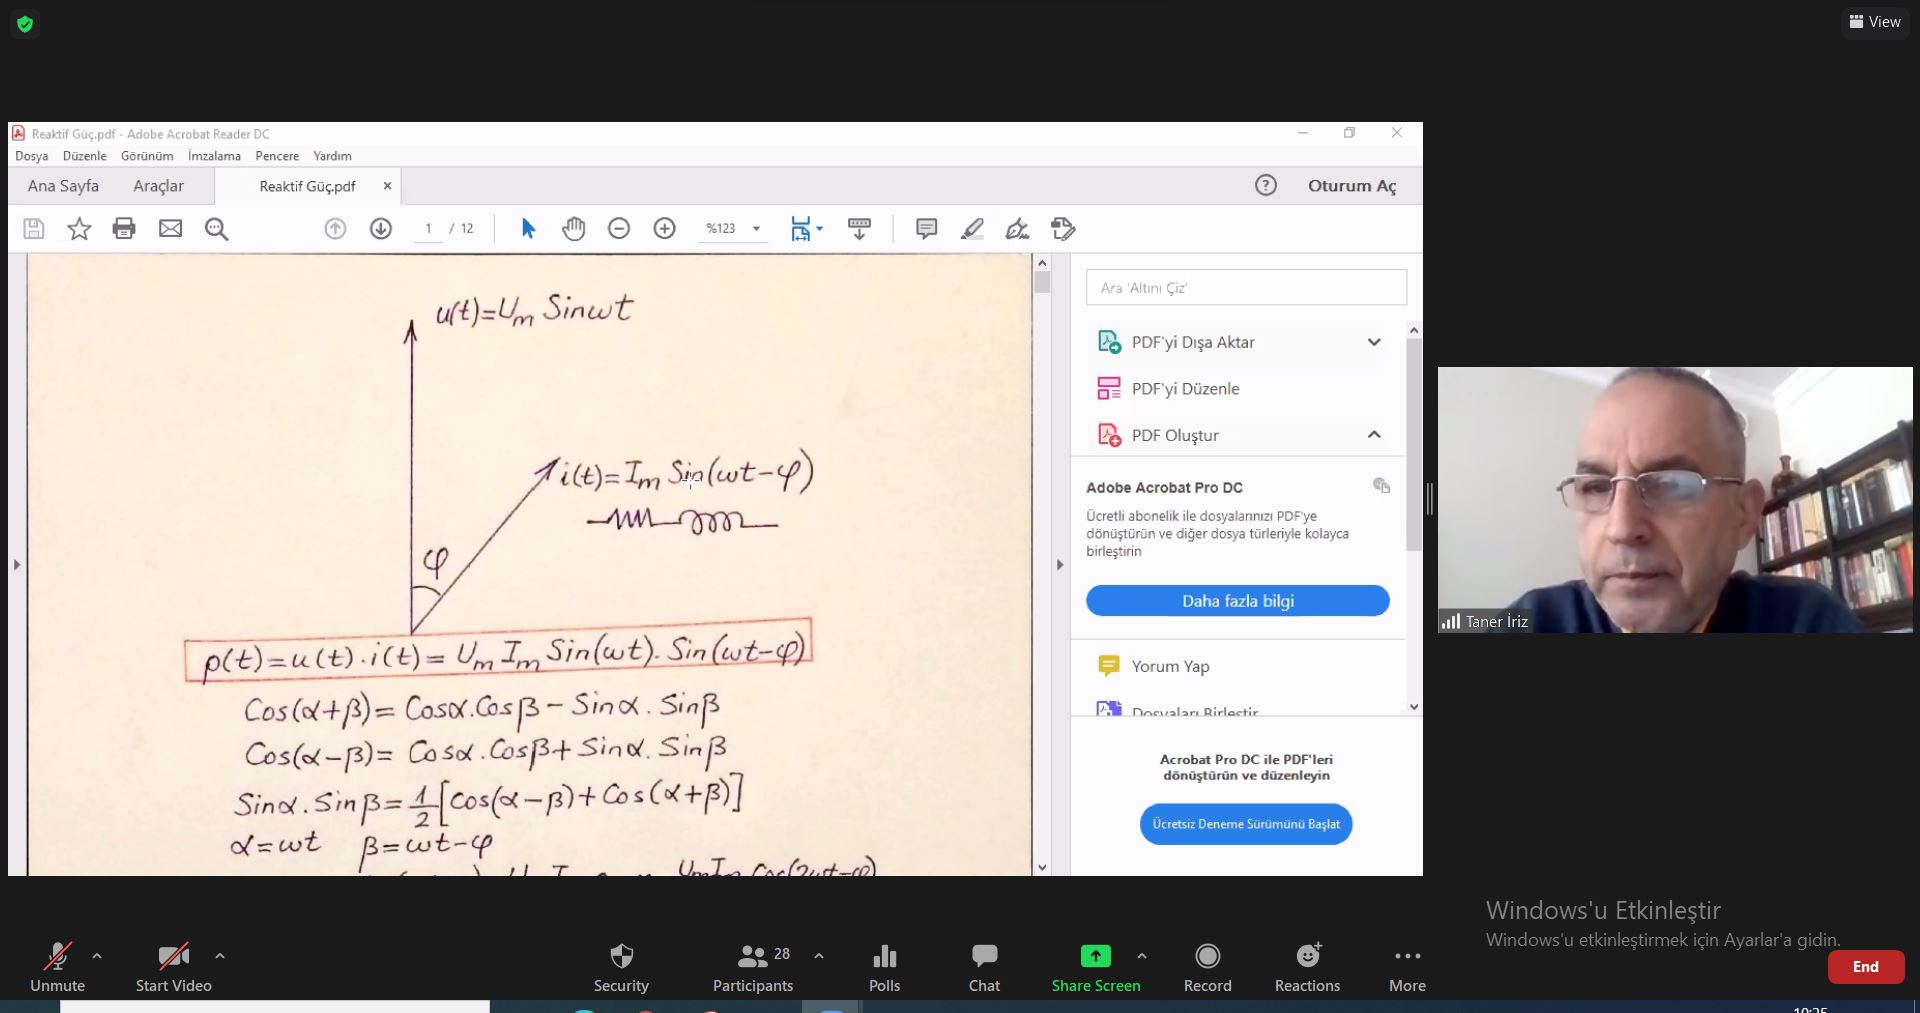 View
Reaktif Güç.pdf - Adobe Acrobat Reader DC
Dosya Düzenle Görünüm İmzalama Pencere Yardım
Ana Sayfa Araçlar Reaktif Güç.pdf × ? Oturum Aç
1 / 12 %123
u(t)=Um Sinωt
i(t)=Im Sin(ωt-φ)
φ
p(t)=u(t).i(t)= Um Im Sin(ωt). Sin(ωt-φ)
Cos(α+β)= Cosα.Cosβ - Sinα. Sinβ
Cos(α-β)= Cosα.Cosβ+ Sinα. Sinβ
Sinα.Sinβ=1/2[Cos(α-β)+Cos(α+β)]
α=ωt β=ωt-φ
UmIm Cos(2ωt-φ)
Ara 'Altını Çiz'
PDF'yi Dışa Aktar
PDF'yi Düzenle
PDF Oluştur
Adobe Acrobat Pro DC
Ücretli abonelik ile dosyalarınızı PDF'ye
dönüştürün ve diğer dosya türleriyle kolayca
birleştirin
Daha fazla bilgi
Yorum Yap
Dosyaları Birleştir
Acrobat Pro DC ile PDF'leri
dönüştürün ve düzenleyin
Ücretsiz Deneme Sürümünü Başlat
Taner İriz
Windows'u Etkinleştir
Windows'u etkinleştirmek için Ayarlar'a gidin.
Unmute
Start Video
Security
28
Participants
Polls
Chat
Share Screen
Record
Reactions
More
End
10:25